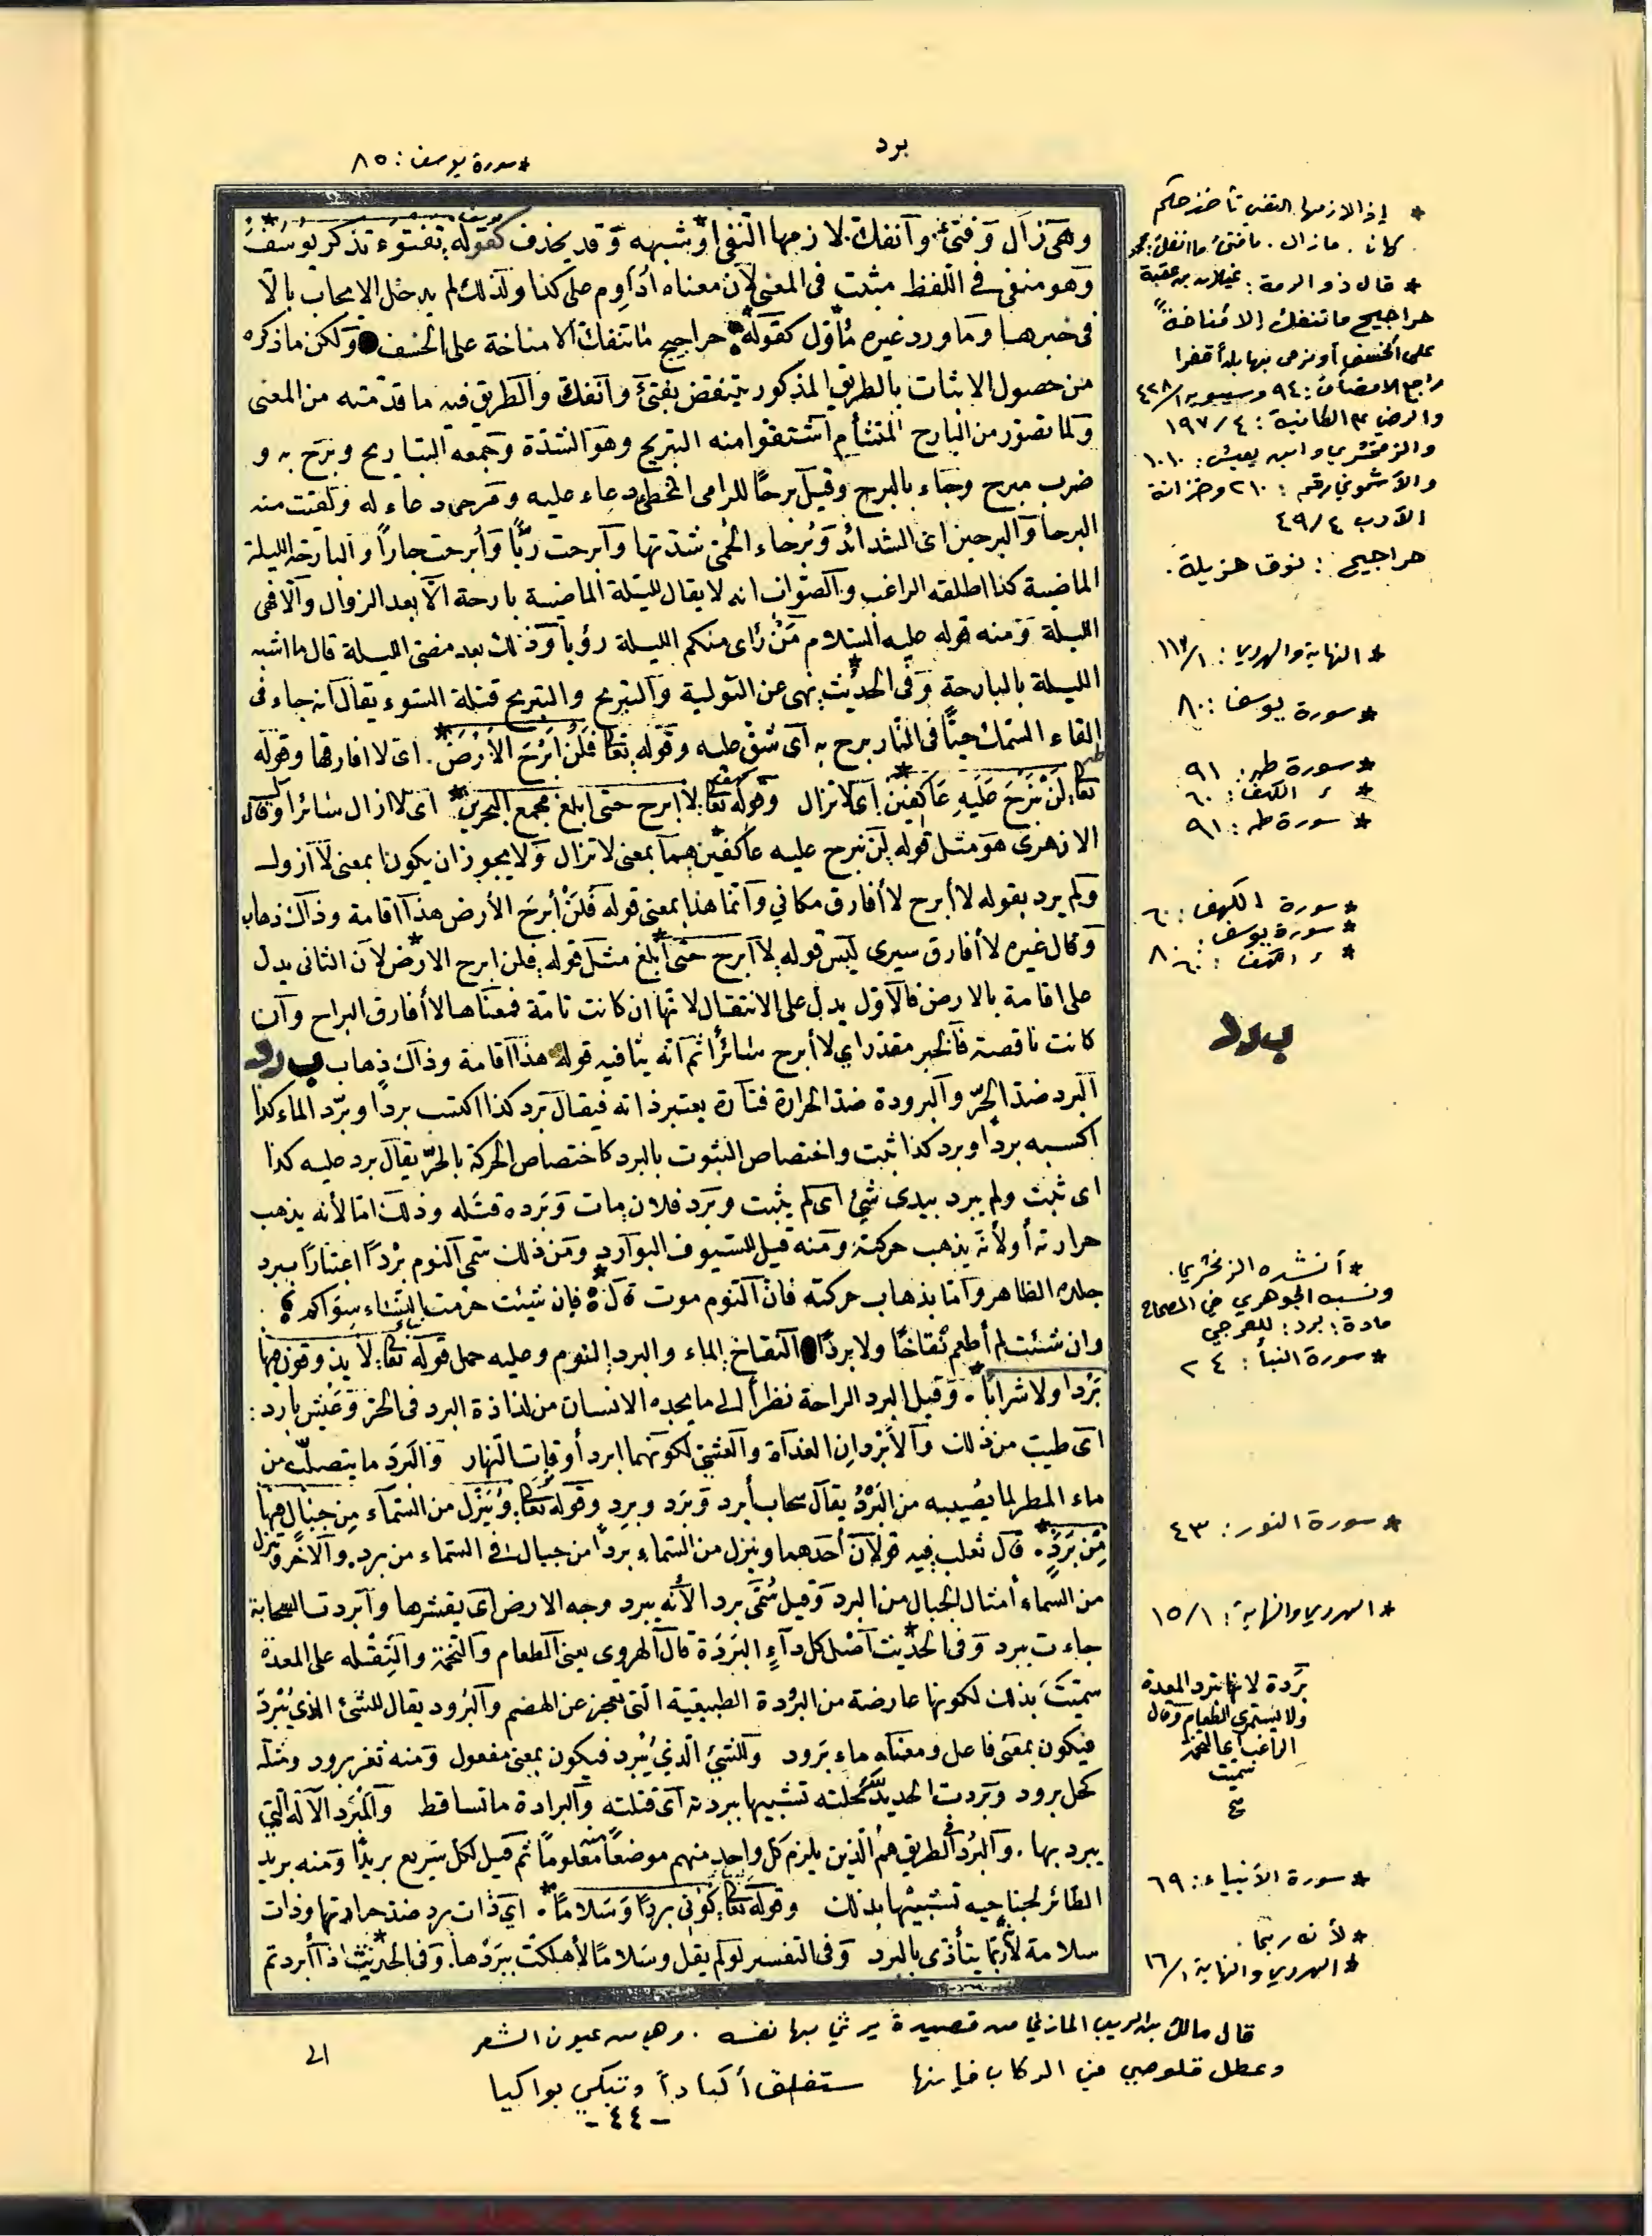 برد
* سورة يوسف : ٨٥
وهى زال وفتئ وانفك لازمها النفى او شبهه وقد يحذف كقوله تفتؤء تذكر يوسف
وهو منفى فى اللفظ مثبت فى المعنى لأن معناه أداوم على كذا ولذلك لم يدخل الايجاب بالا
فى خبرها وما ورد غيره مأول كقوله حراجيج ما تنفك الا مناخة على الخسف ولكن ما ذكره
من حصول الاثبات بالطريق المذكور ينتقض بفتئ وانفك والطريق فيه ما قدمته من المعنى
ولما تصور من البارح المتشأم اشتقوا منه التبريح وهو الشدة وجمعه التباريح وبرح به و
ضرب مبرح وجاء بالبرح وقيل برحًا للرامى المخطئ دعاء عليه ومرحى دعاء له ولقيت منه
البرحا والبرحين اى الشدائد وبُرحاء الحمى شدتها وآبرحت ربًّا وأبرحت جارًا والبارحة الليلة
الماضية كذا اطلقه الراغب والصواب انه لا يقال لليلة الماضية بارحة الا بعد الزوال والا فهى
الليلة ومنه قوله عليه السلام مَنْ رأى منكم الليلة رؤيا وذلك بعد مضى الليلة قال ما اشبه
الليلة بالبارحة وفى الحديث نهى عن التولية والتبريح والتبريح قتلة السوء يقال انه جاء فى
القاء السمك حيًّا فى النار برح به اى شق عليه وقوله تعا فَلَنْ اَبْرَحَ الاَرْضَ * . اى لا افارقها وقوله
تعا لَنْ نَبْرَحَ عَلَيْهِ عَاكِفِينَ اى لا نزال وقوله تعا لا ابرح حتى ابلغ مجمع البحرين * اى لا ازال سائرا وقال
الازهرى هو مثل قوله لن نبرح عليه عاكفين هما بمعنى لا نزال ولا يجوز ان يكونا بمعنى لا ازول
ولم يرد بقوله لا أبرح لا أفارق مكاني وانما هذا بمعنى قوله فَلَنْ أبرحَ الأرض هذا اقامة وذاك ذهاب
وقال غيره لا أفارق سيرى ليس قوله لا ابرح حتى ابلغ مثل قوله فلن ابرح الارض لأن الثانى يدل
على اقامة بالارض فالأول يدل على الانتقال لانها ان كانت تامة فمعناها لا أفارق البراح وان
كانت ناقصة فالخبر مقدر اي لا أبرح سائرًا ثم انه ينافيه قوله هذا اقامة وذاك ذهاب ب رد
البرد ضد الحرّ والبرودة ضد الحرارة فتارة يعتبر ذاته فيقال برد كذا اكتسب بردًا وبرّد الماء كذا
اكسبه بردًا وبرد كذا ثبت واختصاص الثبوت بالبرد كاختصاص الحركة بالحرّ يقال برد عليه كذا
اى ثبت ولم يبرد بيدى شئ اى لم يثبت وبَرَد فلان مات وبَرَده قتله وذلك اما لأنه يذهب
حرارته أو لأنه يذهب حركته ومنه قيل للسيوف البوارد ومن ذلك سمى النوم برْدًا اعتبارًا ببرد
جلده الظاهر واما بذهاب حركته فان النوم موت قال فإن شئت حرّمت النساء سواكم
وان شئت لم أطعم نُقاخًا ولا بردًا النقاخ الماء والبرد النوم وعليه حمل قوله تعا لا يذوقون فيها
بَرْدا ولا شرابًا * . وقيل البرد الراحة نظرًا الى ما يجده الانسان من لذاذة البرد فى الحرّ وعيش بارد :
اى طيب من ذلك والأبْردان الغداة والعشىّ لكونهما ابرد أوقات النهار والبَرَد ما يتصلّب من
ماء المطر لما يصيبه من البَرْد يقال سحاب أبرد وبَرَد وبرِد وقوله تعا وَيُنَزِّل من السماء مِن جبال فيها
مِن بَرَدٍ * . قال ثعلب فيه قولان أحدهما وينزل من السماء بردًا من جبال فى السماء من برد. والآخر وينزل
من السماء أمثال الجبال من البرد وقيل سُمّى بردا لأنه يبرد وجه الارض اى يقشرها وابردت السحابة
جاءت ببرد وفى الحديث اصل كل دآءٍ البَرَدَة قال الهروى يعنى الطعام والتخمة والثِّقلة على المعدة
سميت بذلك لكونها عارضة من البرُدة الطبيعية التى تعجز عن الهضم والبَرُود يقال للشئ الذى يُبْرِدُ
فيكون بمعنى فاعل ومعناه ماء برود وللشئ الذي يُبْرَد فيكون بمعنى مفعول ومنه ثغر برود ومثله
كحل برود وبَرَدت الحديدَ سحلته تشبيها ببردته اى قتلته والبرادة ما تساقط والمبْرَد الآلة التي
يبرد بها . والبُرُد فى الطريق هم الذين يلزم كل واحد منهم موضعًا منه معلومًا ثم قيل لكل سريع بريدًا ومنه بريد
الطائر لجناحيه تشبيهًا بذلك وقوله تعا كُوْنِى بردًا وَسَلامًا * . اي ذات برد ضد حرارتها وذات
سلامة لأنه ربما يتأذى بالبرد وفى التفسير لو لم يقل وسلامًا لأهلكت ببَرْدها . وفى الحديث اذا أبردتم
الى
* إذ الازمها النفى تأخذ حكم
كان . مازال . ما فتئ . ما انفك
* قال ذو الرمة : غيلان بن عقبة
حراجيج ما تنفك إلا مُناخةً
على الخسف أو نرمى بها بلدًا قفرا
راجع الانصاف : ٩٤ وسيبويه ١/ ٤٢٨
والرضي على الكافية : ٤/ ١٩٧
والزمخشري وابن يعيش : ١٠١٠
والأشموني رقم : ٢١٠ وخزانة
الأدب ٤/ ٤٩
حراجيج : نوقا هزيلة .
* النهاية والهروي : ١/ ١١٣
* سورة يوسف : ٨٠
* سورة طه : ٩١
* ر الكهف : ٦٠
* سورة طه : ٩١
* سورة الكهف : ٦٠
* سورة يوسف : ٨٠
* ر الكهف : ٦٠
برد
* أنشده الزمخشري .
ونسبه الجوهري في الصحاح
مادة : برد : للعرجي
* سورة النبأ : ٢٤
* سورة النور : ٤٣
* الهروي والنهاية : ١/ ١٥
بَرَدة لانها تبرد المعدة
ولا يستمرى الطعام وقال
الراغب
سميت
* سورة الأنبياء : ٦٩
* لأنه ربما .
* الهروي والنهاية ١/ ١٦
قال مالك بن الريب المازني من قصيدة يرثي بها نفسه . وهي من عيون الشعر
وعطل قلوصي في الركاب فإنها ستفلق أكبادًا وتبكي بواكيا
- ٤٤ -